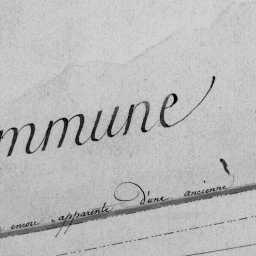 ommune
encore apparente d'une ancienne